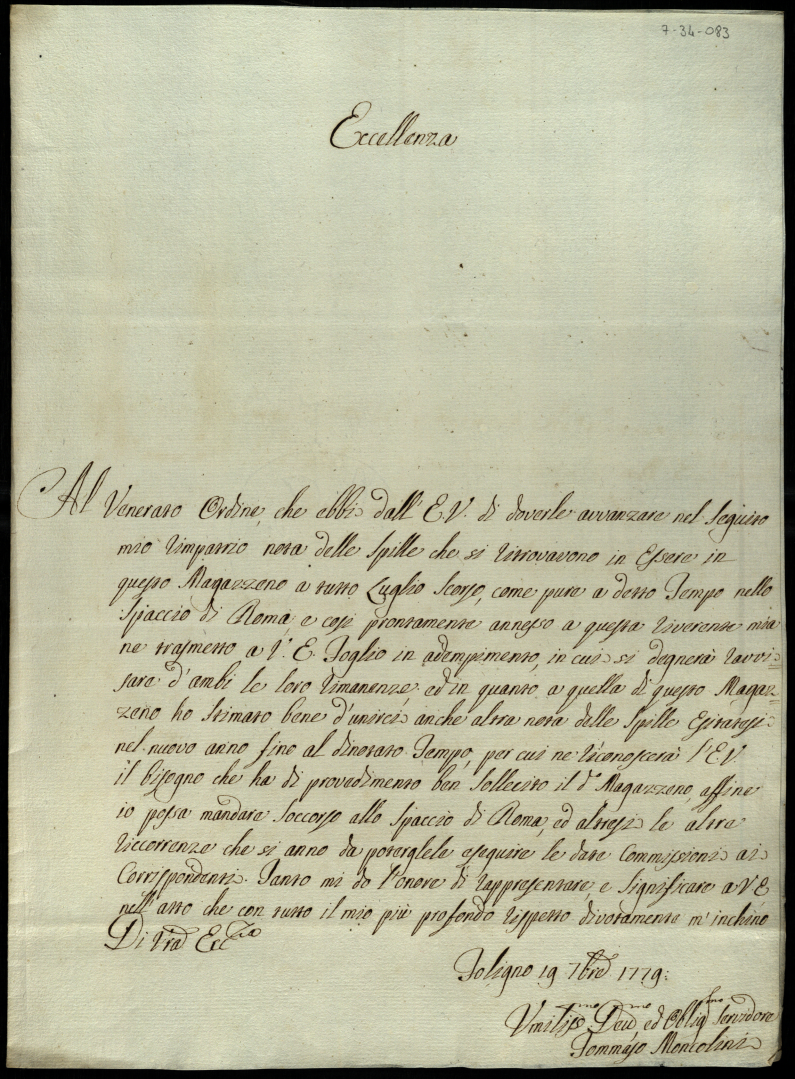 7-34-083
Eccellenza
Al Venerato Ordine, che ebbi dall' E.V. di doverle avvanzare nel Seguito
mio Rimpatrio nota delle Spille che si ritrovavono in Essere in
questo Magazzeno a tutto Luglio Scorso, come pure a detto Tempo nello
Spaccio di Roma, e così prontamente annesso a questa riverente mia
ne trasmetto a V. E. Foglio in adempimento, in cui si degnerà ravvi=
sare d'ambi le loro rimanenze, ed in quanto a quella di questo Magaz=
zeno ho stimato bene d'unirci anche altra nota delle Spille Esitatesi
nel nuovo anno fino al dinotato Tempo, per cui ne riconoscerà l'E.V.
il bisogno che ha di provedimento ben sollecito il d.o Magazzeno, affine
io possa mandare Soccorso allo Spaccio di Roma, ed altresì le altre
ricorrenze che si anno da potergliele eseguire le date Commissioni ai
Corrispondenti. Tanto mi do l'onore di rappresentare, e Significare a V.E.
nell'atto che con tutto il mio più profondo rispetto divotamente m'inchino
Di Vra Ecc.za
Foligno 19 7bre 1779:
Umiliss.mo Dev.mo ed Obblig.mo Servidore
Tommaso Montolini